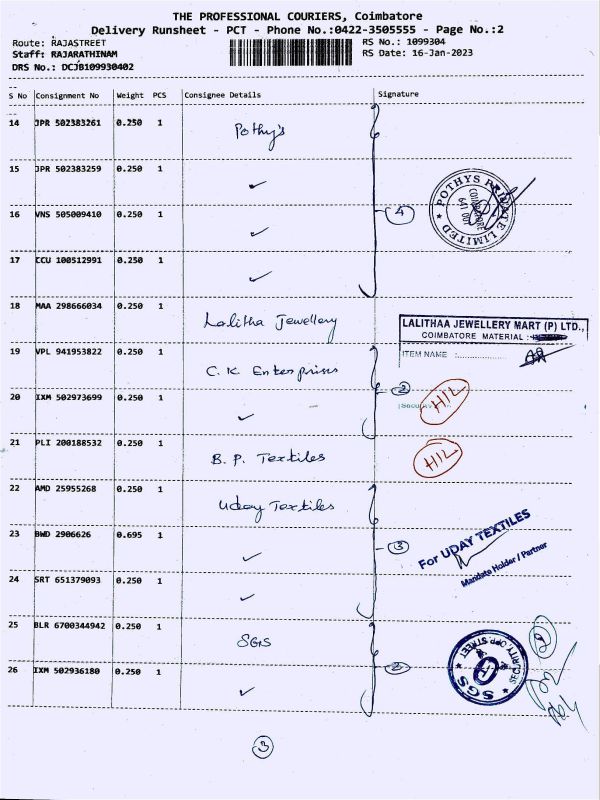 THE PROFESSIONAL COURIERS, Coimbatore
Delivery Runsheet - PCT - Phone No.:0422-3505555 - Page No.:2
Route: RAJASTREET
RS No.: 1099304
Staff: RAJARATHINAM
RS Date: 16-Jan-2023
DRS No.: DCJB109930402
S No Consignment No Weight PCS Consignee Details Signature
14 JPR 502383261 0.250 1 Pothy's
15 JPR 502383259 0.250 1 ✓
POTHYS PRIVATE LIMITED
COIMBATORE
641 001
16 VNS 505009410 0.250 1 ✓ 4
17 CCU 100512991 0.250 1 ✓
18 MAA 298666034 0.250 1 Lalitha Jewellery
LALITHAA JEWELLERY MART (P) LTD.,
COIMBATORE MATERIAL :
19 VPL 941953822 0.250 1 C.K Enterprises
ITEM NAME :
20 IXM 502973699 0.250 1 ✓ 2
H/L
21 PLI 200188532 0.250 1 B. P. Textiles
H/L
22 AMD 25955268 0.250 1 Uday Textiles
23 BWD 2906626 0.695 1 ✓ 3
For UDAY TEXTILES
Mandate Holder / Partner
24 SRT 651379093 0.250 1 ✓
25 BLR 6700344942 0.250 1 SGS
26 IXM 502936180 0.250 1 ✓ 2
SGS
3